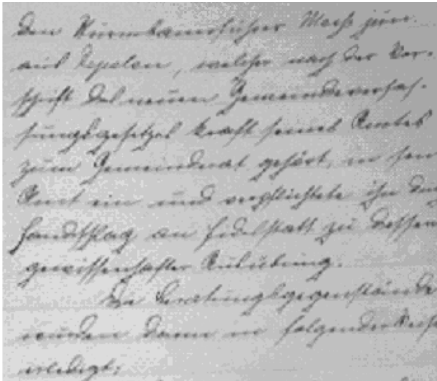 den Sturmbannführer Mack jun.
aus Depolon, welcher nach der Vor-
schrift des neuen Gemeindeverfas-
sungsgesetzes kraft seines Amtes
zum Gemeinderat gehört, in sein
Amt ein und verpflichtete ihn durch
Handschlag an Eidesstatt zu dessen
gewissenhafter Ausübung.
Die Beratungsgegenstände
wurden dann in folgender Weise
erledigt: